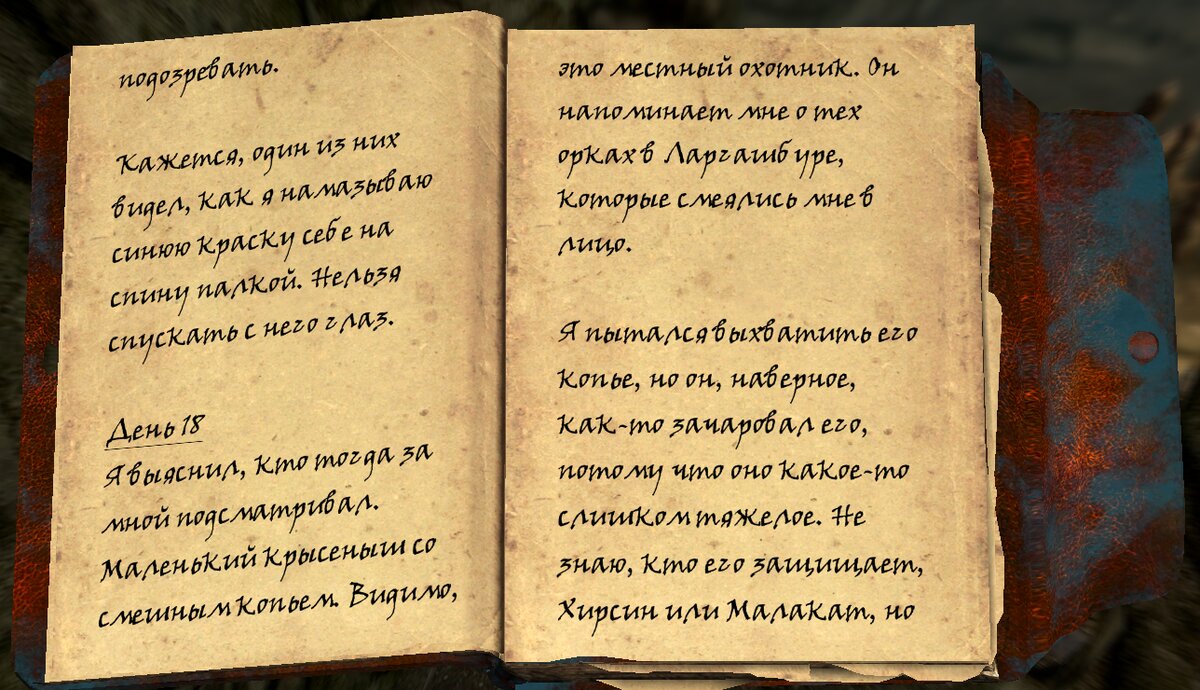 подозревать.
Кажется, один из них
видел, как я намазываю
синюю краску себе на
спину палкой. Нельзя
спускать с него глаз.
День 18
Я выяснил, кто тогда за
мной подсматривал.
Маленький крысеныш со
смешным копьем. Видимо,
это местный охотник. Он
напоминает мне о тех
орках в Ларгашбуре,
которые смеялись мне в
лицо.
Я пытался выхватить его
копье, но он, наверное,
как-то зачаровал его,
потому что оно какое-то
слишком тяжелое. Не
знаю, кто его защищает,
Хирсин или Малакат, но